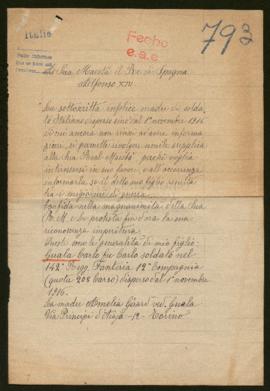 Italie
Fecho
e.a.e
793
A Sua Maestà il Re di Spagna
Alfonso XIII
La sottoscritta infelice madre di solda-
to Italiano disperso sino dal 1° novembre 1916
di cui ancora non seppi avere informa
zioni, si permette umilmente supplica
alla Sua Real Maestà, perchè voglia
interessarsi in suo favore, a chi occorrenza
informarla se il dello mio figlio
sia in prigionia di guerra.
Confida nella magnanimità della Sua
R. M. e le protesta fin d'ora la sua
riconoscenza imperitura.
Queste sono le generalità di mio figlio:
Guala Carlo fu Carlo soldato nel
142° Regg. Fanteria 12ª Compagnia
(quota 208 Carso) disperso dal 1° novembre
1916.
La madre Amelia Girard ved. Guala
Via Principi d'Acaja - 12 - Torino